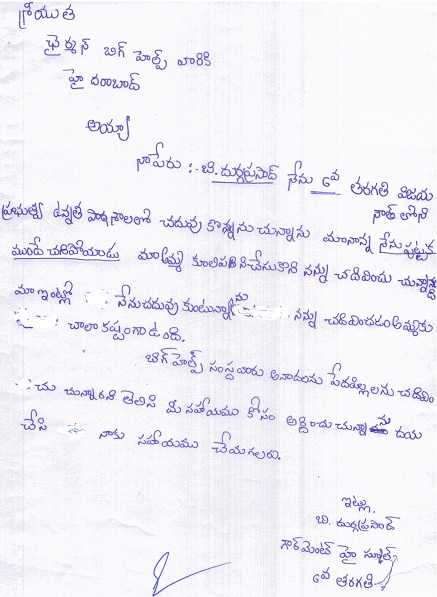 శ్రీయుత
ఛైర్మన్ బిగ్ హెల్ప్ వారికి
హైదరాబాద్
అయ్యా
నాపేరు :- బి.దుర్గప్రసాద్ నేను 6వ తరగతి విజయ
నాత్ లోని
ప్రభుత్వ ఉన్నత పాఠశాలలో చదువు కొన్నను చున్నాను మానాన్న నేను పుట్టక
ముందే చనిపోయాడు మా అమ్మ కూలిపని చేసుకొని నన్ను చదివించు చున్నాది
మా ఇంట్లో నేను చదువు కుంటున్నాను నన్ను చదివించడం అమ్మకు
చాలా కష్టంగా ఉంది.
బిగ్ హెల్ప్ సంస్థవారు అనాదలను పేదపిల్లలను చదివిం
చు చున్నారని తెలిసి మీ సహాయము కోసం అర్దించు చున్నాను దయ
చేసి నాకు సహాయము చేయగలరు.
ఇట్లు,
బి. దుర్గప్రసాద్
గౌర్మెంట్ హై స్కూల్
6వ తరగతి